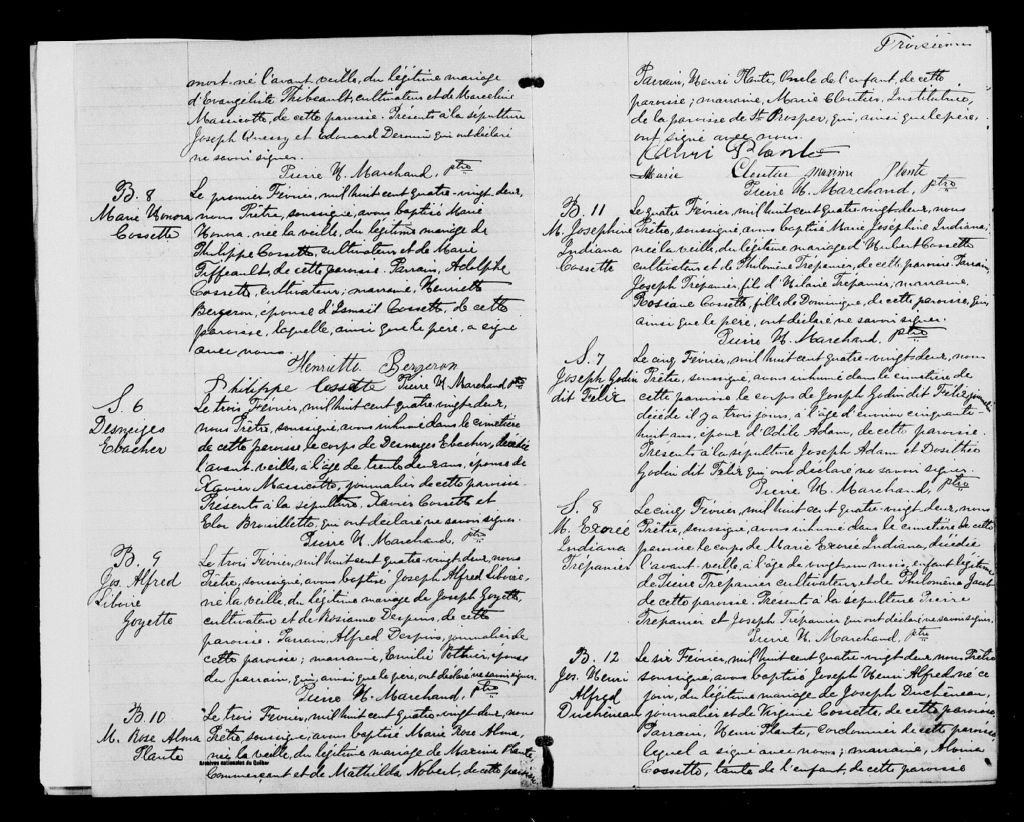 mort-né l'avant veille, du légitime mariage
d'Evangéliste Thibeault, cultivateur et de Marceline
Massicotte, de cette paroisse. Présents à la sépulture
Joseph Quessy et Edouard qui ont déclaré
ne savoir signer.
Pierre H. Marchand, ptre
B. 8
Marie Honora
Cossette
Le premier Février, mil huit cent quatre-vingt-deux,
nous Prêtre, soussigné, avons baptisé Marie
Honora née la veille, du légitime mariage de
Philippe Cossette, cultivateur et de Marie
Tiffeault, de cette paroisse. Parrain, Adolphe
Cossette, cultivateur; marraine, Henriette
Bergeron, épouse d'Ismaïl Cossette, de cette
paroisse, laquelle, ainsi que le père, a signé
avec nous.
Henriette Bergeron
Philippe Cossette Pierre H. Marchand ptre
S. 6
Desneiges
Ebacher
Le trois Février, mil huit cent quatre-vingt-deux,
nous Prêtre, soussigné, avons inhumé dans le cimetière
de cette paroisse le corps de Desneiges Ebacher, décédée
l'avant-veille, à l'âge de trente deux ans, épouse de
Xavier Massicotte, journalier de cette paroisse.
Présents à la sépulture, Xavier Cossette et
Brouillette, qui ont déclaré ne savoir signer.
Pierre H. Marchand, ptre
B. 9
Jos. Alfred
Liboire
Goyette
Le trois Février, mil huit cent quatre-vingt-deux, nous
Prêtre, soussigné, avons baptisé Joseph Alfred Liboire,
né la veille, du légitime mariage de Joseph Goyette,
cultivateur et de Rosianne Despins, de cette
paroisse. Parrain, Alfred Despins, journalier de
cette paroisse; marraine, Emilie Pothier, épouse
du parrain, qui, ainsi que le père, ont déclaré ne savoir signer.
Pierre H. Marchand, ptre
B. 10
M. Rose Alma
Plante
Le trois Février, mil huit cent quatre-vingt-deux, nous
Prêtre, soussigné, avons baptisé Marie Rose Alma,
née la veille, du légitime mariage de Maxime Plante
Archives nationales du Québec
Commerçant et de Mathilda Nobert, de cette paroisse
Troisième
Parrain, Henri Plante, Oncle de l'enfant, de cette
paroisse; marraine, Marie Cloutier, Institutrice,
de la paroisse de St. Prosper, qui, ainsi que le père,
ont signé avec nous.
Henri Plante
Marie Cloutier Maxime Plante
Pierre H. Marchand, ptre
B. 11
M. Josephine
Indiana
Cossette
Le quatre Février, mil huit cent quatre-vingt-deux, nous
Prêtre, soussigné, avons baptisé Marie Josephine Indiana,
née la veille, du légitime mariage d'Hubert Cossette
cultivateur et de Philomène Trépanier, de cette paroisse. Parrain,
Joseph Trépanier, fils d'Hilaire Trépanier; marraine,
Rosiane Cossette, fille de Dominique, de cette paroisse, qui,
ainsi que le père, ont déclaré ne savoir signer.
Pierre H. Marchand ptre
S. 7
Joseph Godin
dit Felix
Le cinq Février, mil huit cent quatre-vingt-deux, nous
Prêtre, soussigné, avons inhumé dans le cimetière de
cette paroisse le corps de Joseph Godin dit Félix, journalier
décédé il y a trois jours, à l'âge d'environ cinquante
huit ans, époux d'Odile Adam, de cette paroisse.
Présents à la sépulture Joseph Adam et Dosithée
Godin dit Felix qui ont déclaré ne savoir signer.
Pierre H. Marchand, ptre
S. 8
M. Exorée
Indiana
Trépanier
Le cinq Février, mil huit cent quatre-vingt-deux, nous,
Prêtre, soussigné, avons inhumé dans le cimetière de cette
paroisse le corps de Marie Exorée Indiana, décédée
l'avant-veille, à l'âge de vingt un mois, enfant légitime
de Pierre Trépanier cultivateur et de Philomène Jacob
de cette paroisse. Présents à la sépulture Pierre
Trépanier et Joseph Trépanier qui ont déclaré ne savoir signer.
Pierre H. Marchand, ptre
B. 12
Jos. Henri
Alfred
Duchêneau
Le six Février, mil huit cent quatre-vingt-deux, nous Prêtre
soussigné, avons baptisé Joseph Henri Alfred né ce
jour, du légitime mariage de Joseph Duchêneau,
journalier et de Virginie Cossette, de cette paroisse
Parrain, Henri Plante, Cordonnier de cette paroisse
lequel a signé avec nous; marraine,
Cossette, tante de l'enfant, de cette paroisse